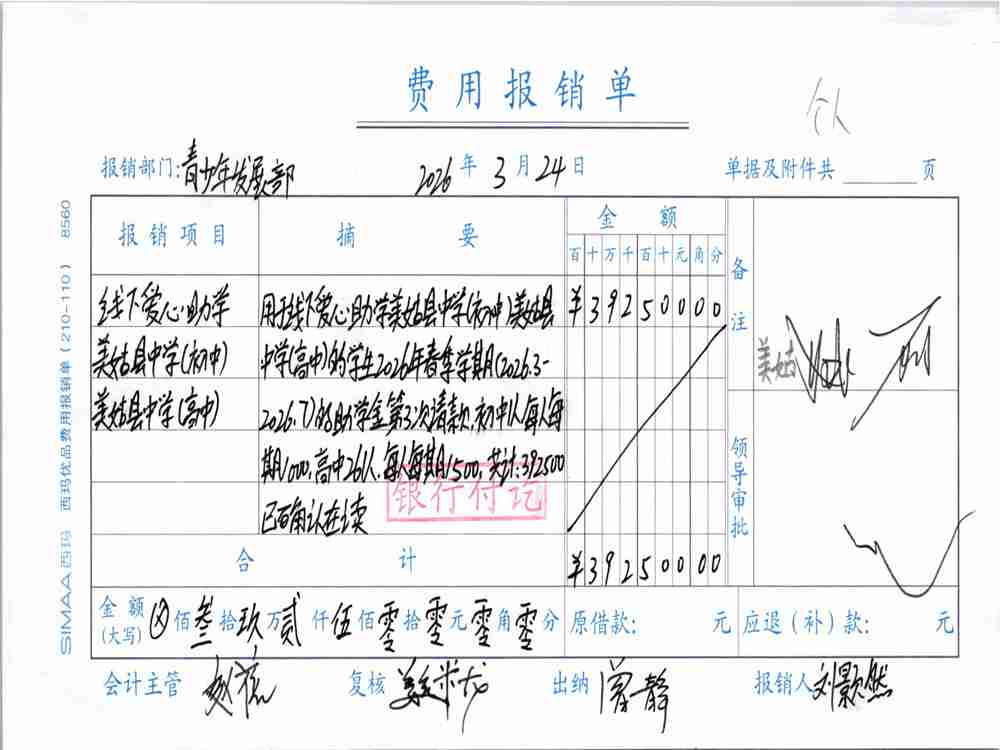 费用报销单
个人
报销部门:青少年发展部 2026年3月24日 单据及附件共 页
报销项目 摘要 金额 备注
百十万千百十元角分
线下爱心助学 用于线下爱心助学美姑县中学(初中)美姑县 ¥39250000
美姑县中学(初中) 中学(高中)的学生2026年春季学期(2026.3-
美姑县中学(高中) 2026.7)的助学金第3次请款,初中1人每人每
期1000,高中261人,每人每期1500,共计:392500
已确认在读
银行付讫
美姑
领导审批
合计 ¥39250000
金额(大写) ⊗佰叁拾玖万贰仟伍佰零拾零元零角零分 原借款: 元 应退(补)款: 元
会计主管 复核 出纳 曾静 报销人 刘颢然
SIMAA西玛 西玛优品费用报销单(210-110) 8560